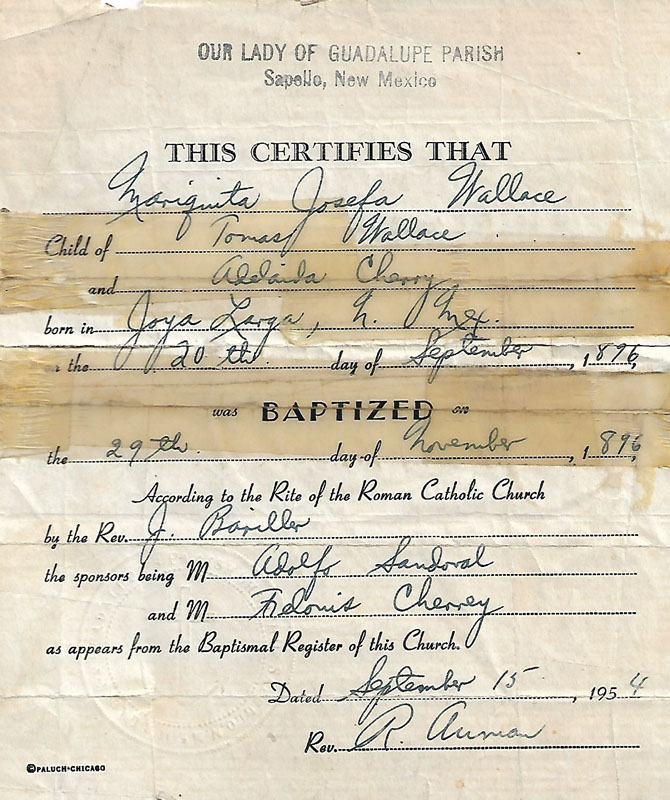 OUR LADY OF GUADALUPE PARISH
Sapello, New Mexico
THIS CERTIFIES THAT
Mariquita Josefa Wallace
Child of Tomas Wallace
and Adelaida Cherry
born in Joya Larga, N. Mex.
the 20th day of September, 1896,
was BAPTIZED on
the 29th day of November, 1896
According to the Rite of the Roman Catholic Church
by the Rev. J. Bariller
the sponsors being M Adolfo Sandoval
and M Felonis Cherrey
as appears from the Baptismal Register of this Church.
Dated September 15, 1954
Rev. R. Auman
©PALUCH-CHICAGO